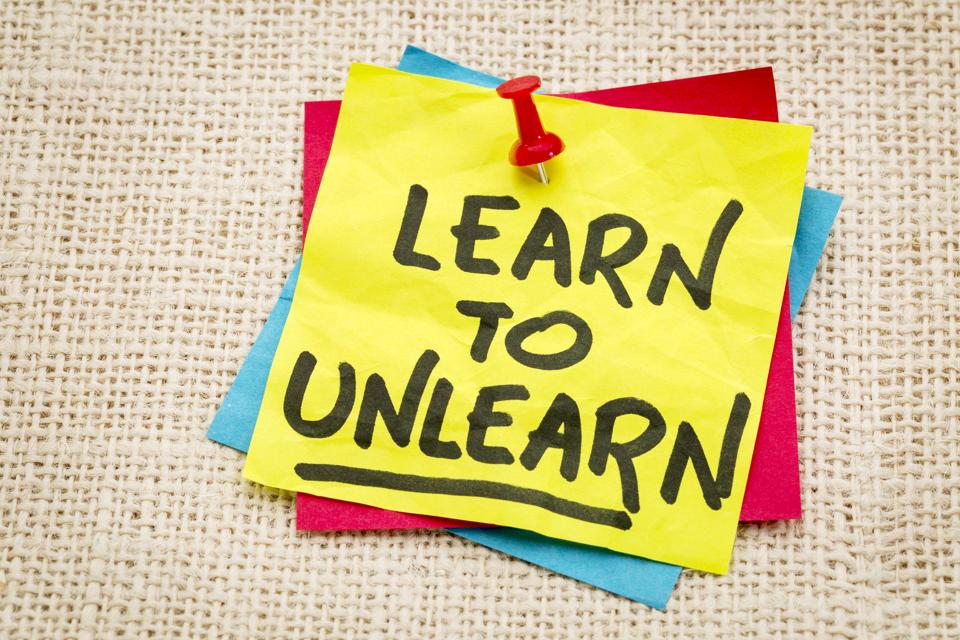 LEARN
TO
UNLEARN